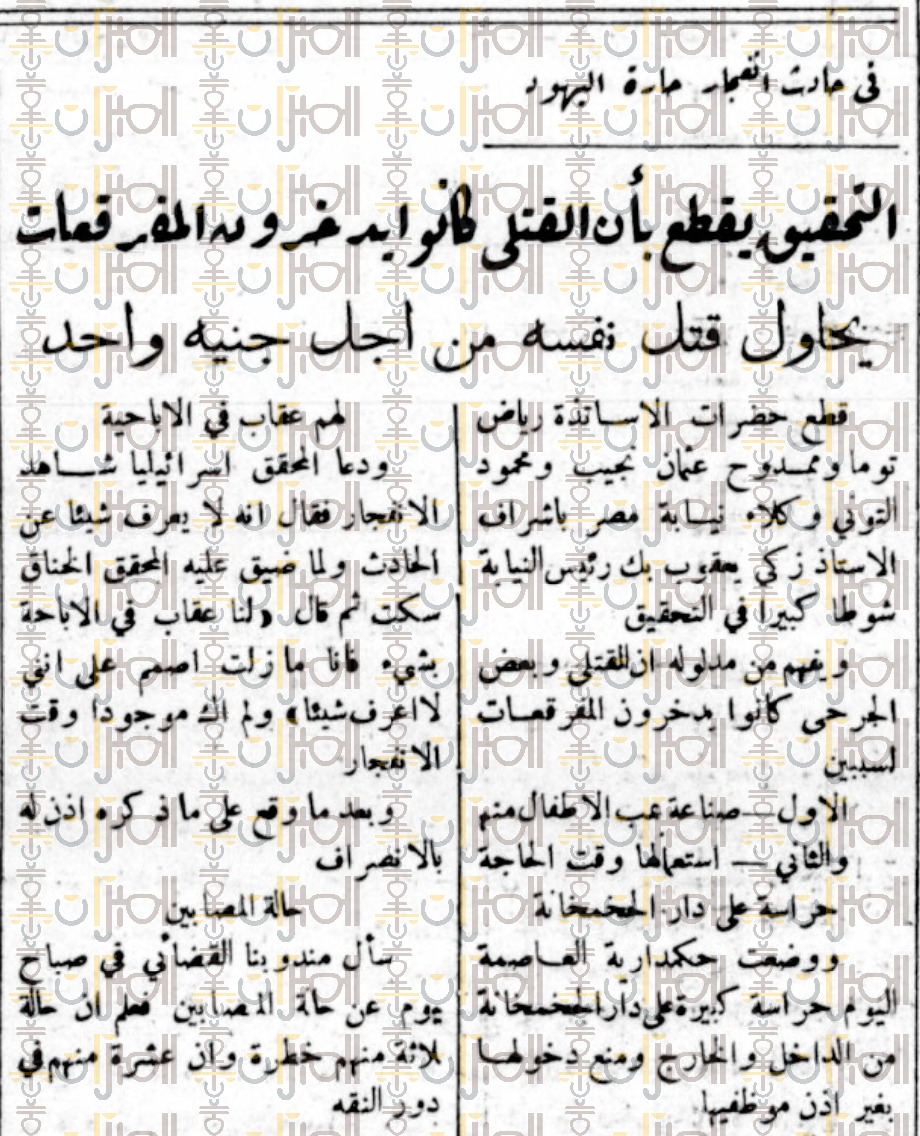 في حادث انفجار حارة اليهود
التحقيق يقطع بأن القتلى كانوا يدخرون المفرقعات
يحاول قتل نفسه من اجل جنيه واحد
قطع حضرات الاساتذة رياض
توما وممدوح عثمان نجيب ومحمود
التوني وكلاء نيابة مصر باشراف
الاستاذ زكي يعقوب بك رئيس النيابة
شوطا كبيرا في التحقيق
ويفهم من مدلوله ان القتلى وبعض
الجرحى كانوا يدخرون المفرقعات
لسببين
الاول — صناعة لعب الاطفال منه
والثاني — استعمالها وقت الحاجة
حراسة على دار الحخمخانة
ووضعت حكمدارية العاصمة
اليوم حراسة كبيرة على دار الحخمخانة
من الداخل والخارج ومنع دخولها
بغير اذن موظفيها
لهم عقاب في الاباحية
ودعا المحقق اسرائيليا شاهد
الانفجار فقال انه لا يعرف شيئا عن
الحادث ولما ضيق عليه المحقق الخناق
سكت ثم قال «لنا عقاب في الاباحة
بشيء فأنا ما زلت اصمم على انني
لا اعرف شيئا» ولم اك موجودا وقت
الانفجار
وبعد ما وقع على ما ذكره اذن له
بالانصراف
حالة المصابين
سأل مندوبنا القضائي في صباح
يوم عن حالة المصابين فعلم ان حالة
ثلاثة منهم خطرة وان عشرة منهم في
دور النقه